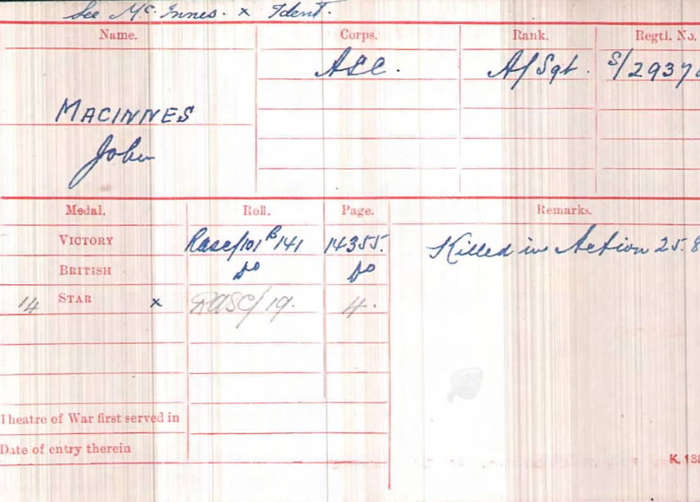 See McInnes. x Ident.
Name. Corps. Rank. Regtl. No.
ASC. A/Sgt. S/2937
MACINNES
John
Medal. Roll. Page. Remarks.
VICTORY Rasc/101 B 141 14355. Killed in Action 25.8
BRITISH do do
14 STAR x RASC/19. 4.
Theatre of War first served in
Date of entry therein
K. 13